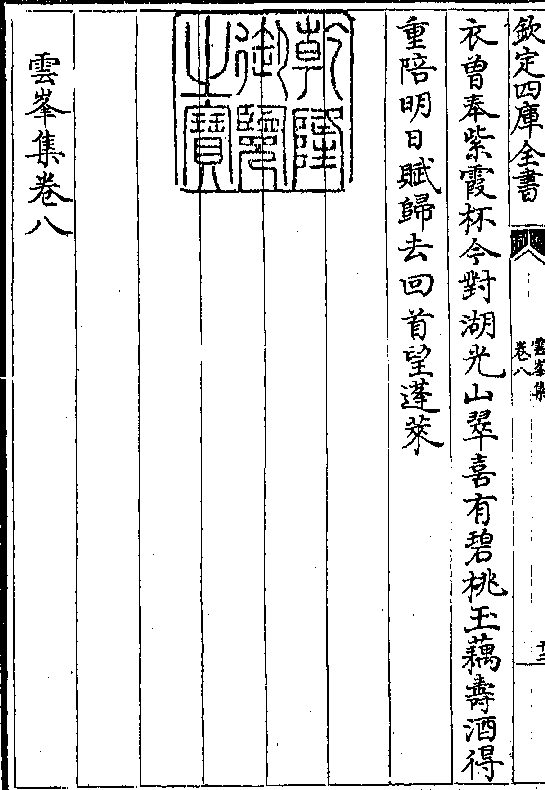 欽定四庫全書
雲峯集
卷八
十二
衣曾奉紫霞杯今對湖光山翠喜有碧桃玉藕壽酒得
重陪明日賦歸去回首望蓬萊
乾隆
御覽
之寶
雲峯集卷八